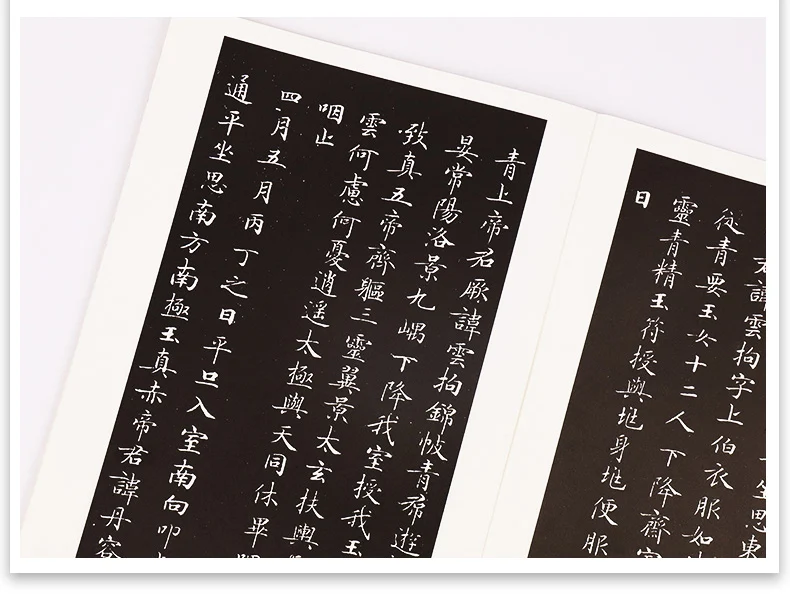 坐思東
君諱雲拘字上伯衣服如
從青要玉女十二人下降齋室
靈青精玉符授與地身地便服
日
青上帝君厥諱雲拘錦帔青帬遊
晏常陽洛景九嵎下降我室授我玉
致真五帝齊軀三靈翼景太玄扶輿
雲何慮何憂逍遙太極與天同休畢
咽止
四月五月丙丁之日平旦入室南向叩
通平坐思南方南極玉真赤帝君諱丹容